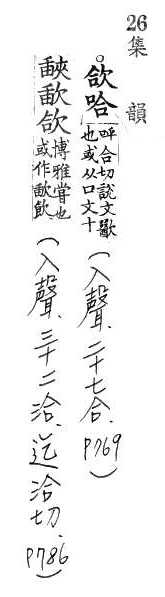 26 集韻
。欱哈 呼合切說文歠
也或从口文十
(入聲.二十七合.P769)
欱 博雅嘗也
或作
(入聲.三十二洽.迄洽切.P786)